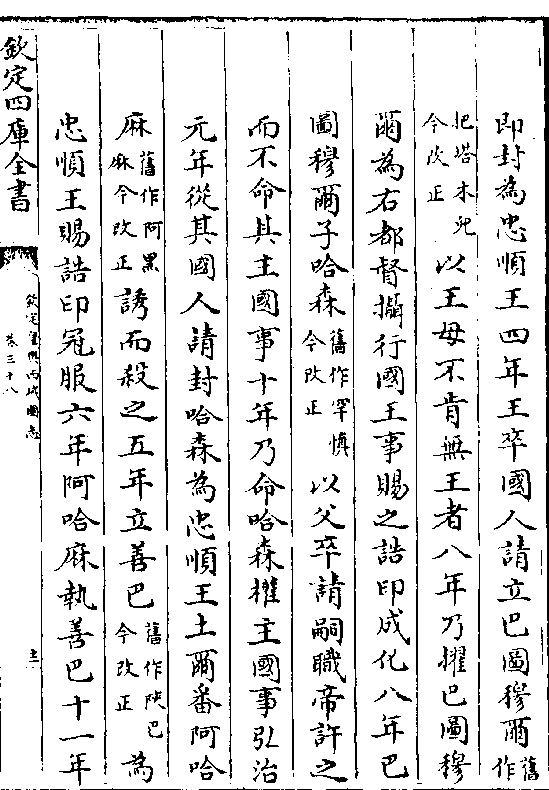 即封為忠順王四年王卒國人請立巴圖穆爾舊作
把塔木兒今改正以王母不肯無王者八年乃擢巴圖穆
爾為右都督攝行國王事賜之誥印成化八年巴
圖穆爾子哈森舊作罕慎今改正以父卒請嗣職帝許之
而不命其主國事十年乃命哈森權主國事弘治
元年從其國人請封哈森為忠順王土爾番阿哈
麻舊作阿黑麻今改正誘而殺之五年立善巴舊作陜巴今改正為
忠順王賜誥印冠服六年阿哈麻執善巴十一年
欽定四庫全書
欽定皇輿西域圖志
卷三十八